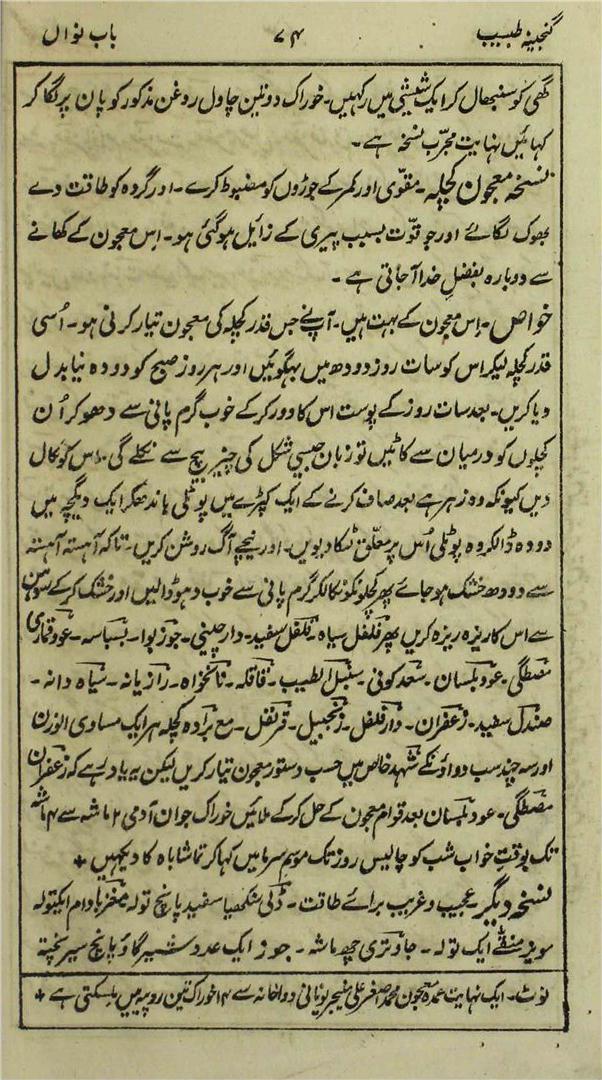 گنجینہ طبیب ۷۴ باب نواں
گھی کو سنبھال کر ایک شیشی میں رکہیں۔ خوراک دو تین چاول روغن مذکور کو پان پر لگا کر
کہائیں نہایت مجرّب نسخہ ہے۔
نسخہ معجون کچلہ۔ مقوّی اور کمر کے جوڑوں کو مضبوط کرے۔ اور گردہ کو طاقت دے
بھوک لگائے اور جو قوّت بسبب پیری کے زائیل ہو گئی ہو۔ اس معجون کے کھانے
سے دوبارہ بفضل خدا آجاتی ہے۔
خواص۔ اِس معجون کے بہت ہیں۔ آپنے جس قدر کچلہ کی معجون تیار کرنی ہو۔ اُسی
قدر کچلہ لیکر اس کو سات روز دودھ میں بہگوئیں اور ہر روز صبح کو دودہ نیا بدل
دیا کریں۔ بعد سات روز کے پوست اس کا دور کر کے خوب گرم پانی سے دھو کر اُن
کچلوں کو درمیان سے کاٹیں تو زبان جیسی شکل کی چیز بیچ سے نکلے گی۔ اس کو نکال
دیں کیونکہ وہ زہر ہے بعد صاف کرنے کے ایک کپڑے میں پوٹلی باندھکر ایک دیگچہ میں
دودہ ڈالکر وہ پوٹلی اُس پر معلّق لٹکا دیویں۔ اور نیچے آگ روشن کریں۔ تاکہ آہستہ آہستہ
سے دودھ خشک ہو جائے پھر کچلونکو نکالکر گرم پانی سے خوب دہو ڈالیں اور خشک کر کے سوہن
سے اس کا ریزہ ریزہ کریں پھر فلفل سیاہ۔ فلفل سفید۔ دارچینی۔ جوزبوا۔ بسباسہ۔ عود قماری
مصطگی۔ عود بلسان۔ سعد کوفی۔ سنبل الطیب۔ قاقلہ۔ نانخواہ۔ رازیانہ۔ سیاہ دانہ۔
صندل سفید۔ زعفران۔ دارفلفل۔ زنجبیل۔ قرنفل۔ مع برادہ کچلہ ہر ایک مساوی الوزن
اور سہ چند سب دواؤنکے شہد خالص میں حسب دستور معجون تیار کریں لیکن یہ یاد رہے کہ زعفران
مصطگی۔ عود بلسان بعد قوام معجون کے حل کر کے ملائیں خوراک جوان آدمی ۲ ماشہ سے ۴ ماشہ
تک بوقت خواب شب کو چالیس روز تک موسم سرما میں کہا کر تماشا باہ کا دیکہیں
نسخہ دیگر عجیب و غریب برائے طاقت۔ ڈلی سنکھیا سفید پانچ تولہ مغز بادام ایکتولہ
مویز منقے ایک تولہ۔ جاوتری چھ ماشہ۔ جوز ایک عدد شیر گاؤ پانچ سیر پختہ
نوٹ۔ ایک نہایت عمدہ معجون محمد اصغر علی منیجر یونانی دواخانہ سے ۱۴ خوراک تین روپیہ میں ملسکتی ہے